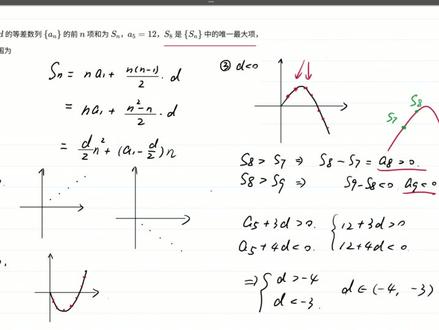 d 的等差数列 {aₙ} 的前 n 项和为 Sₙ, a₅ = 12, S₈ 是 {Sₙ} 中的唯一最大项,
围为
Sₙ = na₁ + n(n-1)/2 · d
= na₁ + (n²-n)/2 · d
= d/2 n² + (a₁ - d/2)n
③ d<0
S₇ S₈
S₈ > S₇ ⇒ S₈ - S₇ = a₈ > 0.
S₈ > S₉ ⇒ S₉-S₈<0 a₉<0
a₅+3d>0. { 12+3d>0
a₅+4d<0. 12+4d<0
⇒ { d>-4
d<-3. d∈(-4, -3)